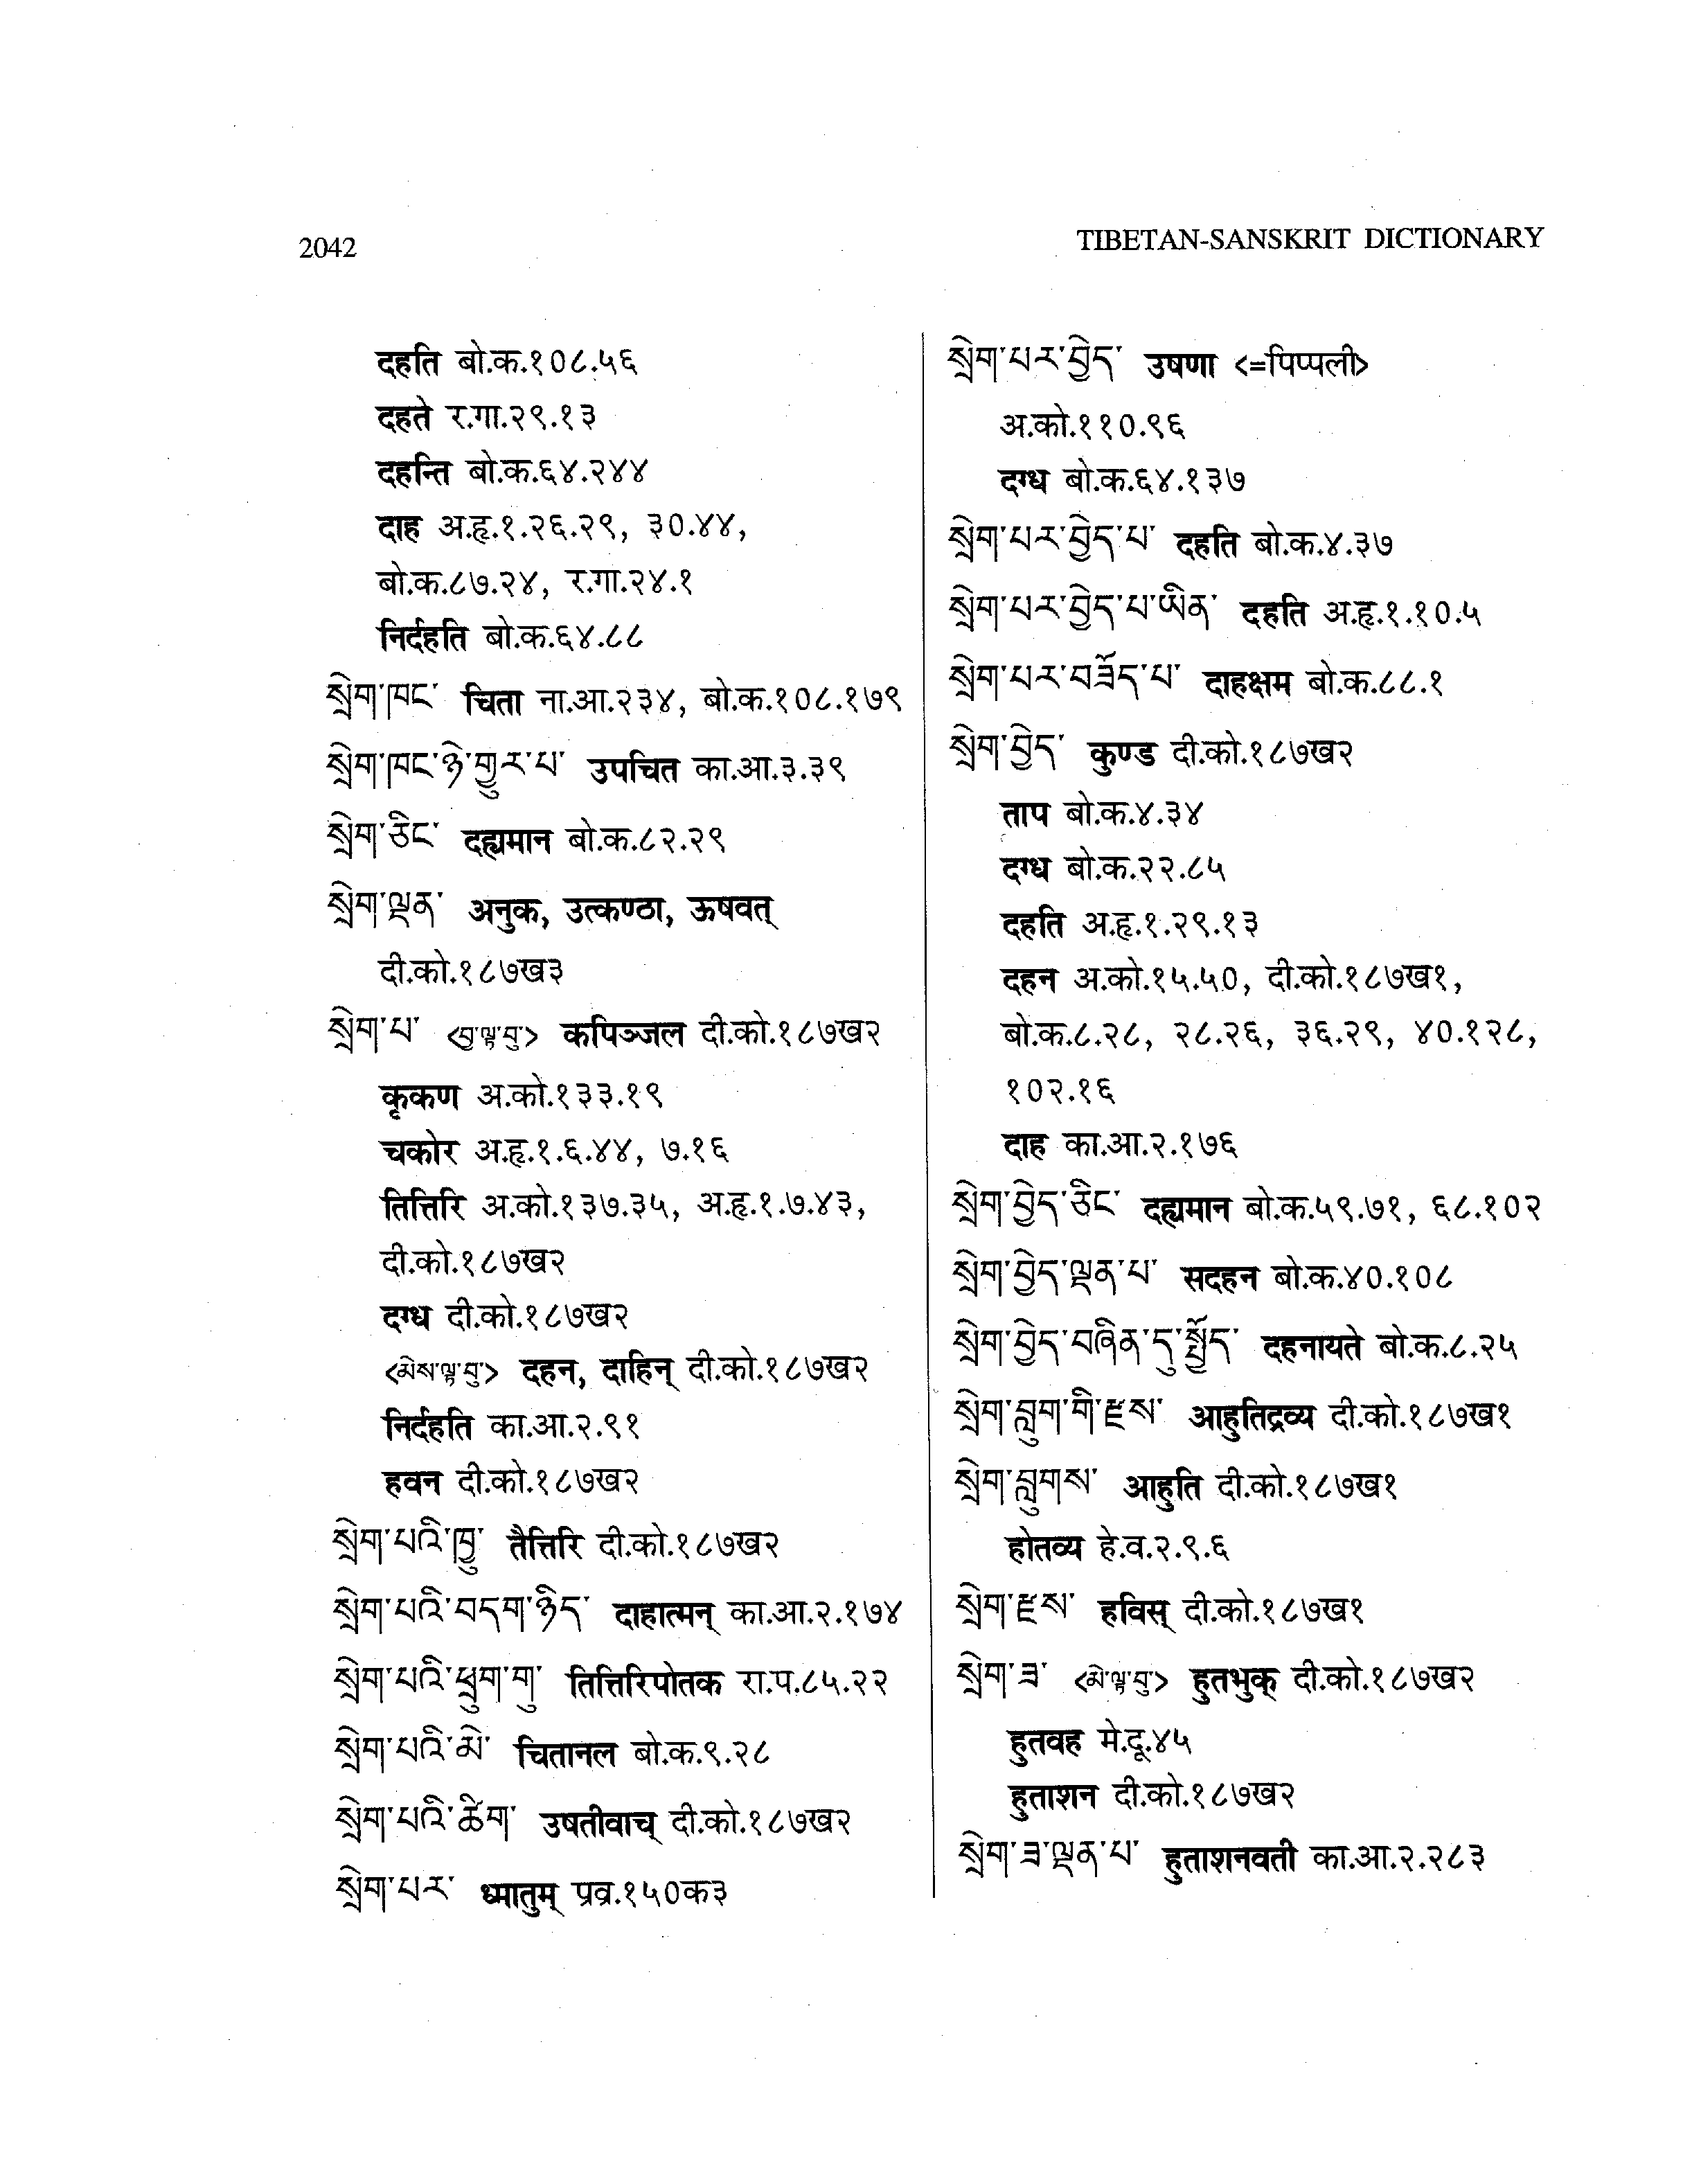 2042
TIBETAN-SANSKRIT DICTIONARY
दहति बो.क.१०८.५६
दहते र.गा.२९.१३
दहन्ति बो.क.६४.२४४
दाह अ.हृ.१.२६.२९, ३०.४४,
बो.क.८७.२४, र.गा.२४.१
निर्दहति बो.क.६४.८८
སྲེག་ཁང་ चिता ना.आ.२३४, बो.क.१०८.१७९
སྲེག་ཁང་ཉེ་གྱུར་པ་ उपचित का.आ.३.३९
སྲེག་ཅིང་ दह्यमान बो.क.८२.२९
སྲེག་ལྡན་ अनुक, उत्कण्ठा, ऊषवत्
दी.को.१८७ख३
སྲེག་པ་ <བྱ་ལྟ་བུ་> कपिञ्जल दी.को.१८७ख२
कृकण अ.को.१३३.१९
चकोर अ.हृ.१.६.४४, ७.१६
तित्तिरि अ.को.१३७.३५, अ.हृ.१.७.४३,
दी.को.१८७ख२
दग्ध दी.को.१८७ख२
<མེས་ལྟ་བུ་> दहन, दाहिन् दी.को.१८७ख२
निर्दहति का.आ.२.९१
हवन दी.को.१८७ख२
སྲེག་པའི་ཁྱུ་ तैत्तिरि दी.को.१८७ख२
སྲེག་པའི་བདག་ཉིད་ दाहात्मन् का.आ.२.१७४
སྲེག་པའི་ཕྲུག་གུ་ तित्तिरिपोतक रा.प.८५.२२
སྲེག་པའི་མེ་ चितानल बो.क.९.२८
སྲེག་པའི་ཚིག་ उषतीवाच् दी.को.१८७ख२
སྲེག་པར་ ध्मातुम् प्रव्र.१५०क३
སྲེག་པར་བྱེད་ उषणा <=पिप्पली>
अ.को.११०.९६
दग्ध बो.क.६४.१३७
སྲེག་པར་བྱེད་པ་ दहति बो.क.४.३७
སྲེག་པར་བྱེད་པ་ཡིན་ दहति अ.हृ.१.१०.५
སྲེག་པར་བཟོད་པ་ दाहक्षम बो.क.८८.१
སྲེག་བྱེད་ कुण्ड दी.को.१८७ख२
ताप बो.क.४.३४
दग्ध बो.क.२२.८५
दहति अ.हृ.१.२९.१३
दहन अ.को.१५.५०, दी.को.१८७ख१,
बो.क.८.२८, २८.२६, ३६.२९, ४०.१२८,
१०२.१६
दाह का.आ.२.१७६
སྲེག་བྱེད་ཅིང་ दह्यमान बो.क.५९.७१, ६८.१०२
སྲེག་བྱེད་ལྡན་པ་ सदहन बो.क.४०.१०८
སྲེག་བྱེད་བཞིན་དུ་སྤྱོད་ दहनायते बो.क.८.२५
སྲེག་བླུག་གི་རྫས་ आहुतिद्रव्य दी.को.१८७ख१
སྲེག་བླུགས་ आहुति दी.को.१८७ख१
होतव्य हे.व.२.९.६
སྲེག་རྫས་ हविस् दी.को.१८७ख१
སྲེག་ཟ་ <མེ་ལྟ་བུ་> हुतभुक् दी.को.१८७ख२
हुतवह मे.दू.४५
हुताशन दी.को.१८७ख२
སྲེག་ཟ་ལྡན་པ་ हुताशनवती का.आ.२.२८३